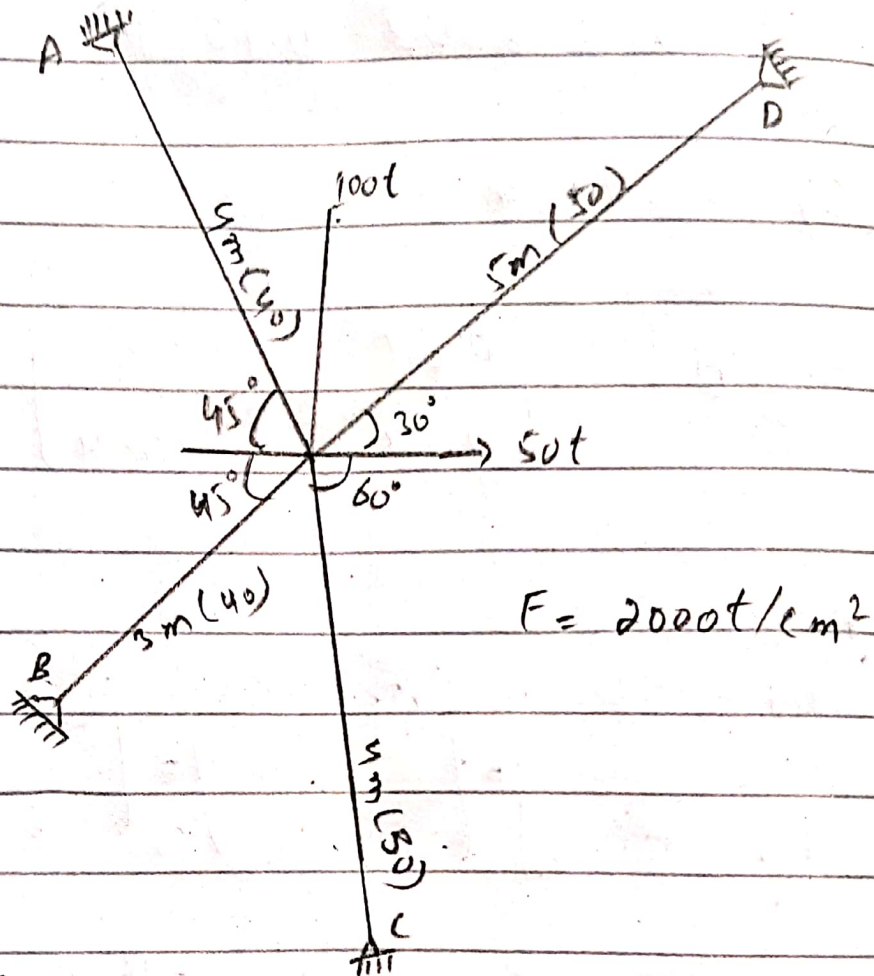 A
D
100t
4m (40)
5m (50)
45°
30°
50t
45°
60°
3m (40)
E = 2000t/cm²
B
C